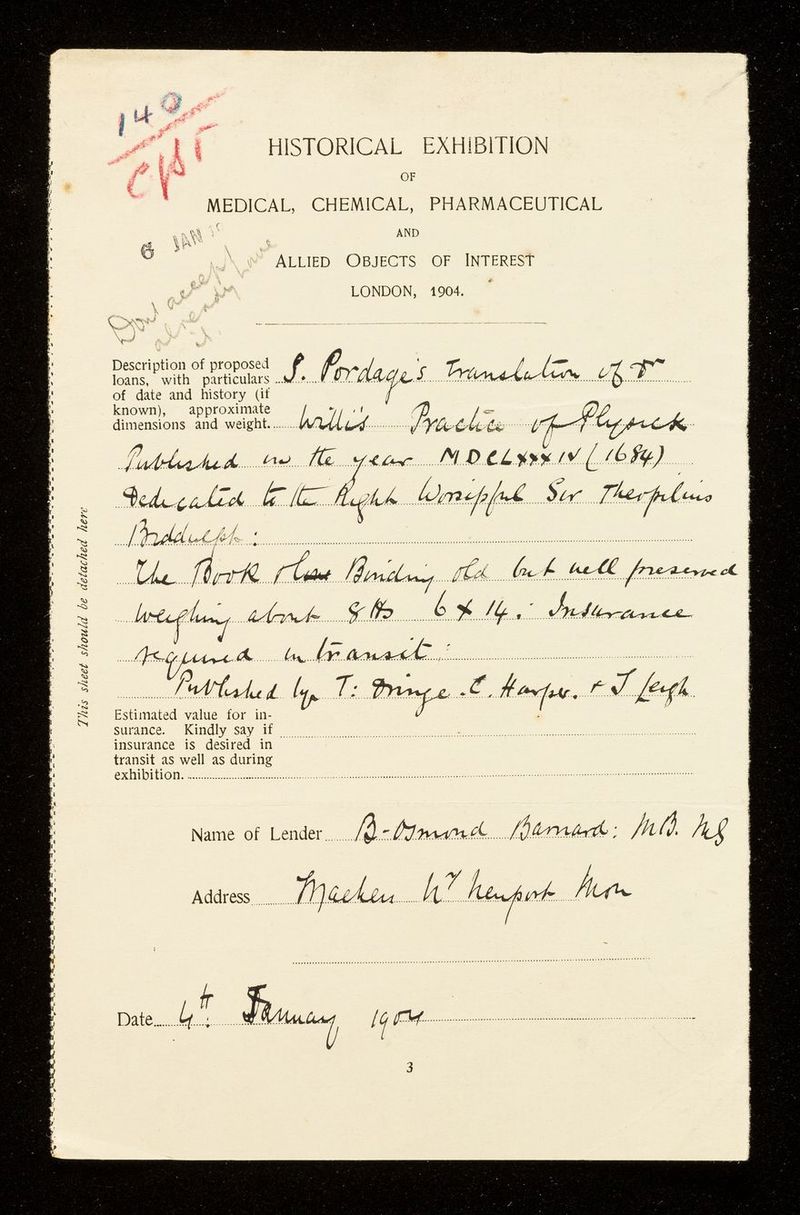 140
HISTORICAL EXHIBITION
OF
MEDICAL, CHEMICAL, PHARMACEUTICAL
AND
6 JAN
ALLIED OBJECTS OF INTEREST
LONDON, 1904.
Dont accept
already have
it.
Description of proposed
loans, with particulars
of date and history (if
known), approximate
dimensions and weight.
S. Pordage's Translation of Dr
Willis Practice of Physick
Published in the year MDCLXXXIV (1684)
Dedicated to the Right Worsipful Sir Theopilius
Biddulph:
The Book & Binding old but well preserved
weighing about 8 lbs 6 x 14. Insurance
required in transit:
Published by T: Dringe. C. Harper. & J Leigh
Estimated value for in-
surance. Kindly say if
insurance is desired in
transit as well as during
exhibition.
Name of Lender B-Osmond Barnard: M.B. MS
Address Machen Nr Newport Mon
Date 4th: January 1904
3
This sheet should be detached here